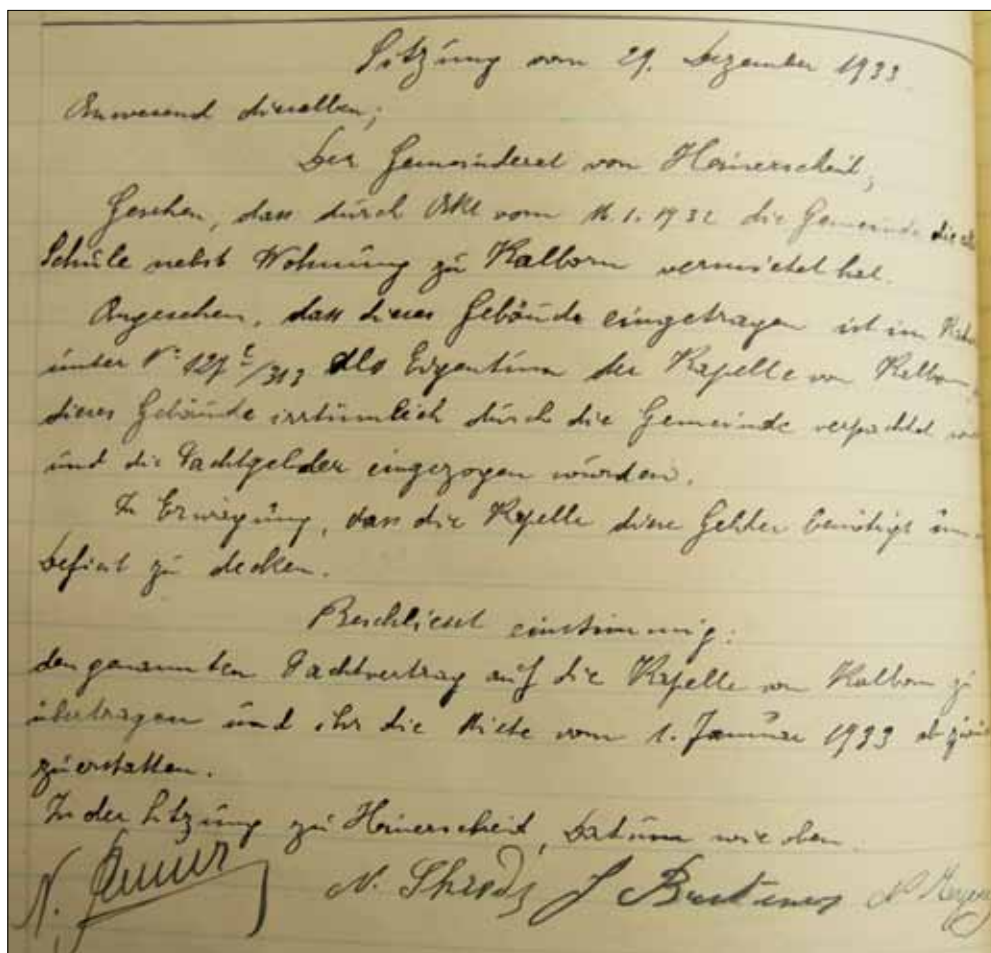 Sitzung vom 29. Dezember 1933.
Anwesend dieselben;
Der Gemeinderat von Heinerscheid,
Gesehen, dass durch Akt vom 16.1.1932 die Gemeinde die
Schule nebst Wohnung zu Kalborn vermietet hat.
Angesehen, dass dieses Gebäude eingetragen ist im
unter N° 127 /313 als Eigentum der Kapelle von Kalborn,
dieses Gebäude irrtümlich durch die Gemeinde verpachtet
und die Pachtgelder eingezogen wurden.
In Erwägung, dass die Kapelle diese Gelder benötigt um
Defizit zu decken.
Beschliesst einstimmig:
den genannten Pachtvertrag auf die Kapelle von Kalborn zu
übertragen und ihr die Miete vom 1. Januar 1933 ab
zuerstatten.
In der Sitzung zu Heinerscheid, Datum wie oben.
N. N. J N. Meyers